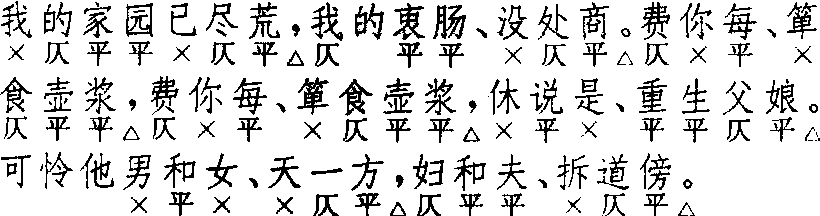 我的家园已尽荒，我的衷肠、没处商。费你每、箪
× 仄 平 平 × 仄 平 △ 仄 平 平 × 仄 平 △ 仄 × 平 ×
食壶浆，费你每、箪食壶浆，休说是、重生父娘。
仄 平 平 △ 仄 × 平 × 仄 平 平 △ × 平 × 平 平 仄 平 △
可怜他男和女、天一方，妇和夫、拆道傍。
× 平 × × 仄 平 △ 仄 平 平 × 仄 平 △